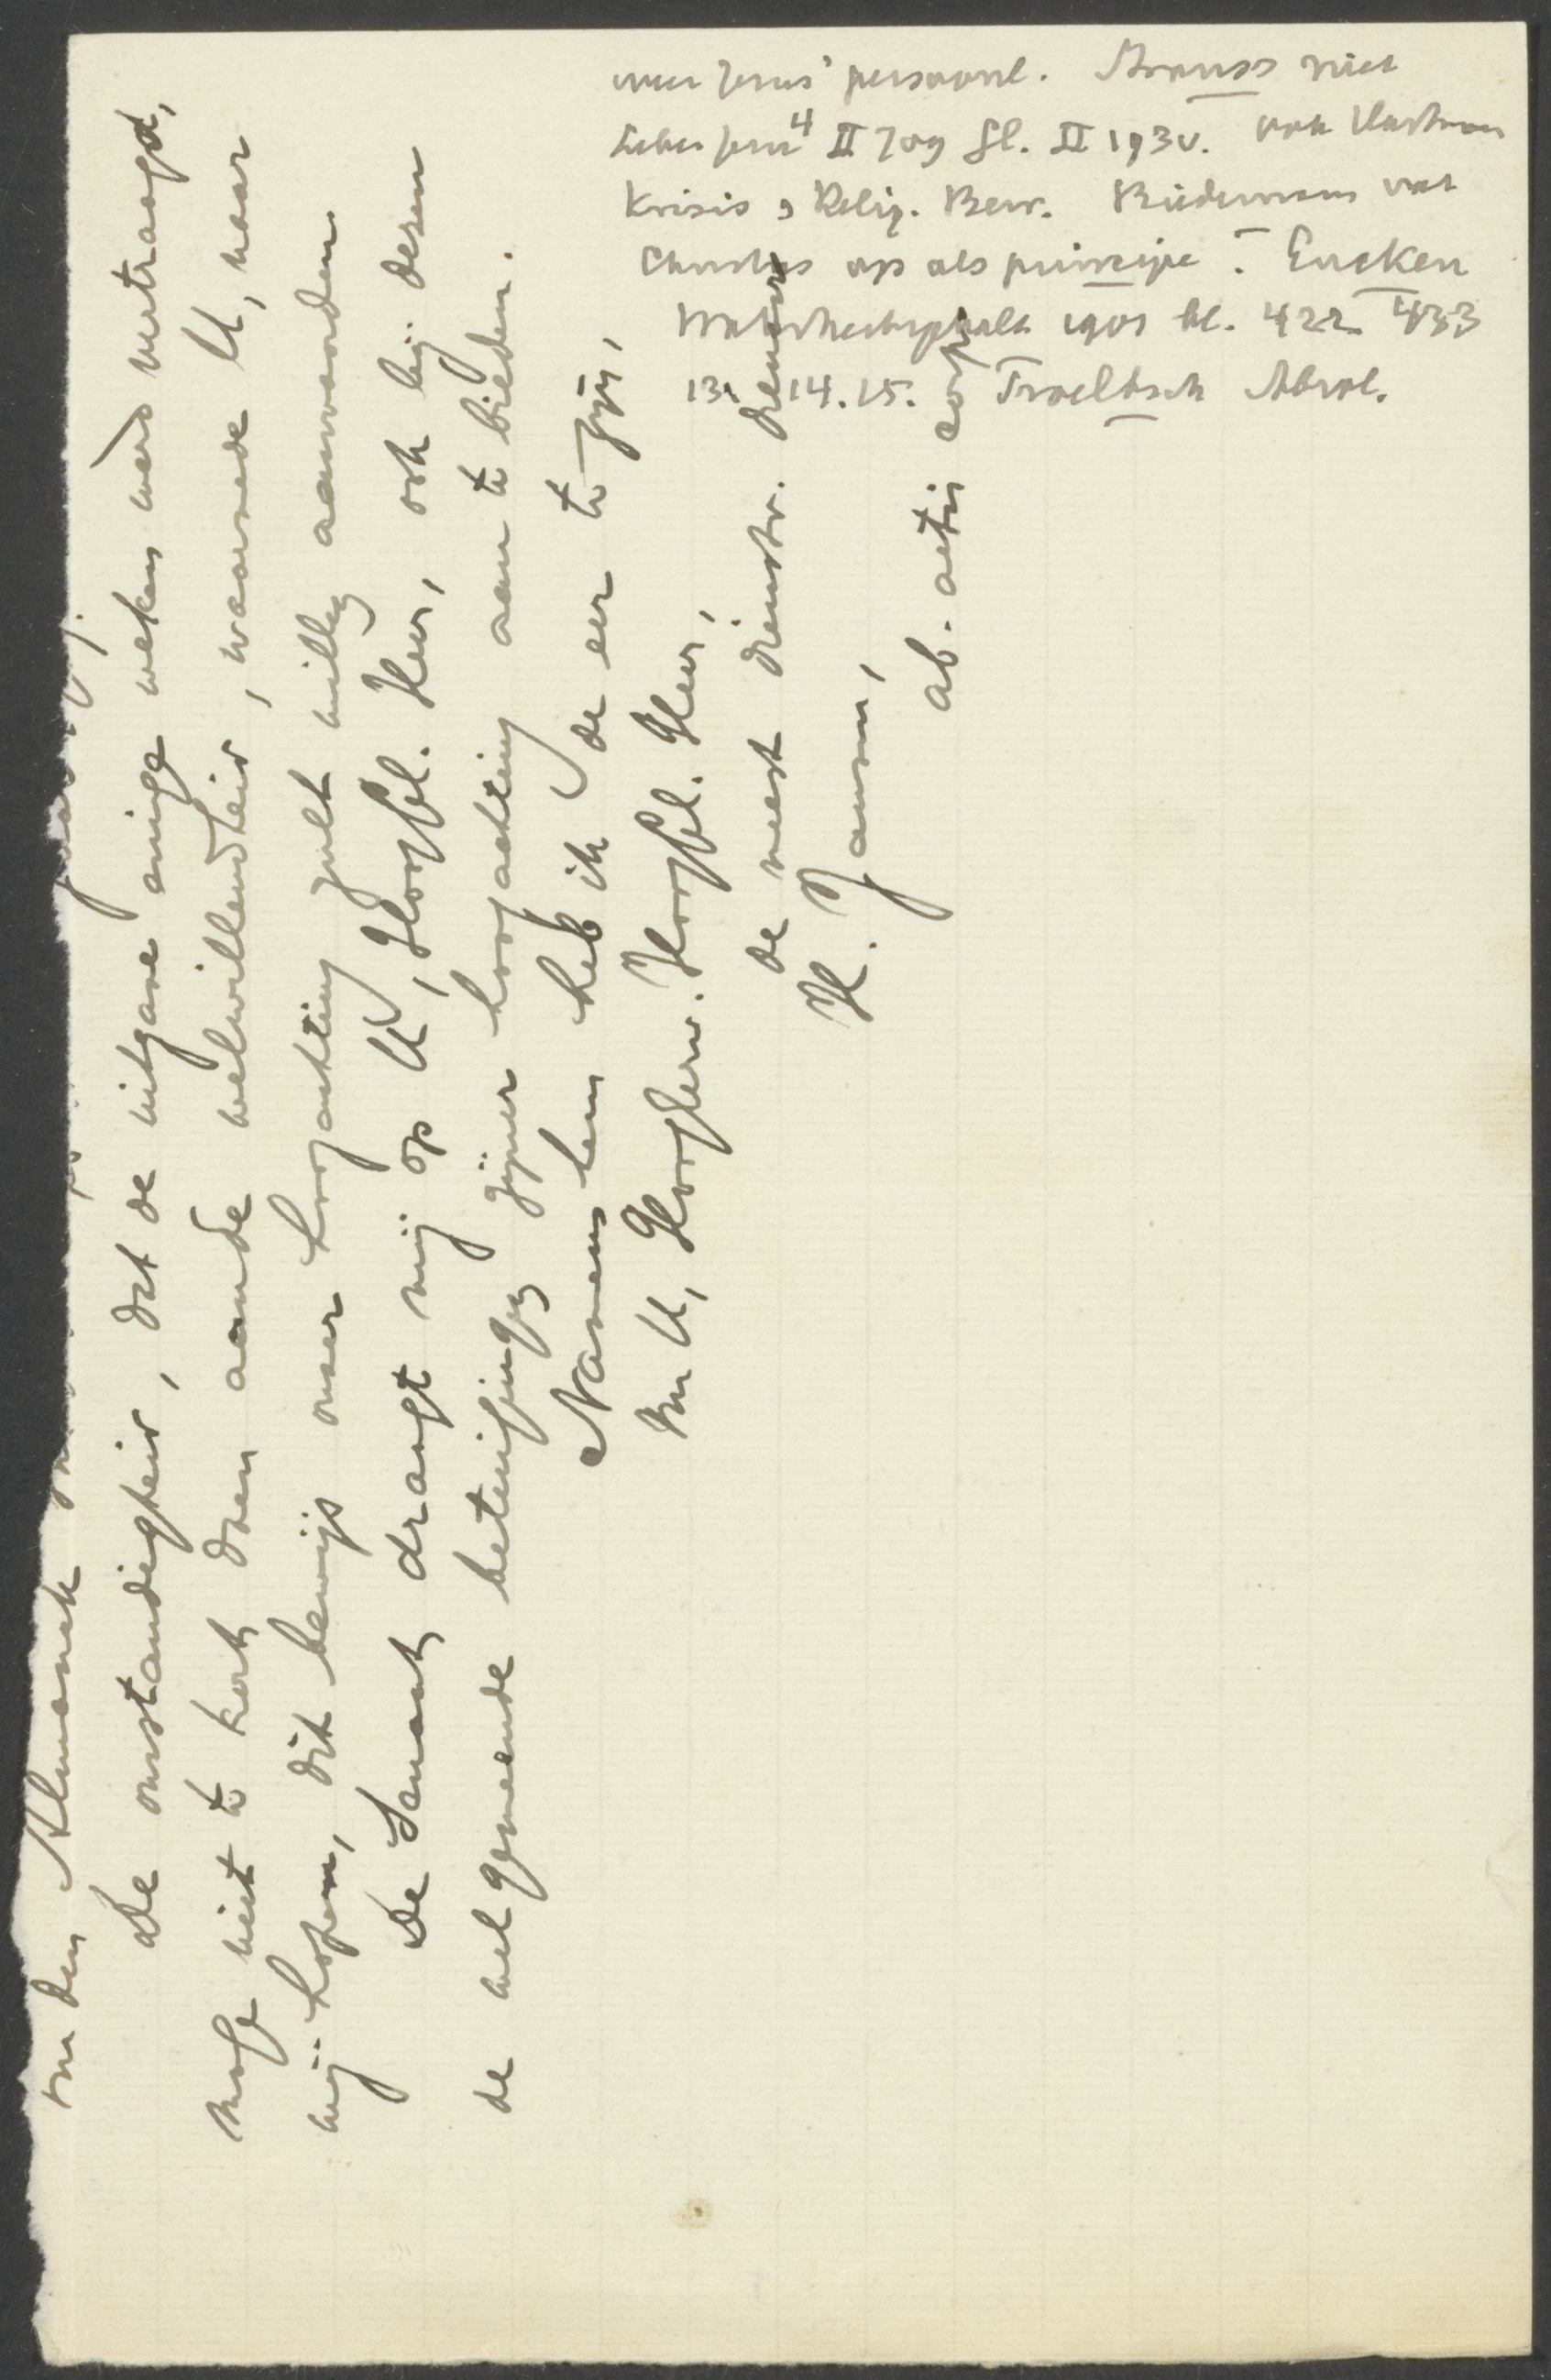 van den Almanak
De omstandigheid, dat de uitgave eenige weken werd vertraagd,
moge niet te kort doen aan de welwillendheid, waarmede U, naar
wij hopen, dit bewijs onzer hoogachting zult willen aanvaarden
De Senaat draagt mij op U, Hooggel. Heer, ook bij dezen
de welgemeende betuigingen zijner hoogachting aan te bieden.
Namens hem heb ik de eer te zijn,
Hooggel. Heer,
de meest dienstw. dienaar
H. Jansen,
ab-actis
over Jezus' persoonl. Strauss niet
Leben Jesu⁴ II 709 Gl. II 193v. ook Hartmann
Krisis, Relig. Bew. Biedermann vat
Christus op als principe. Eucken
Wahrheitsgehalt 1901 bl. 422 433
13. 14. 15. Troeltsch Absol.